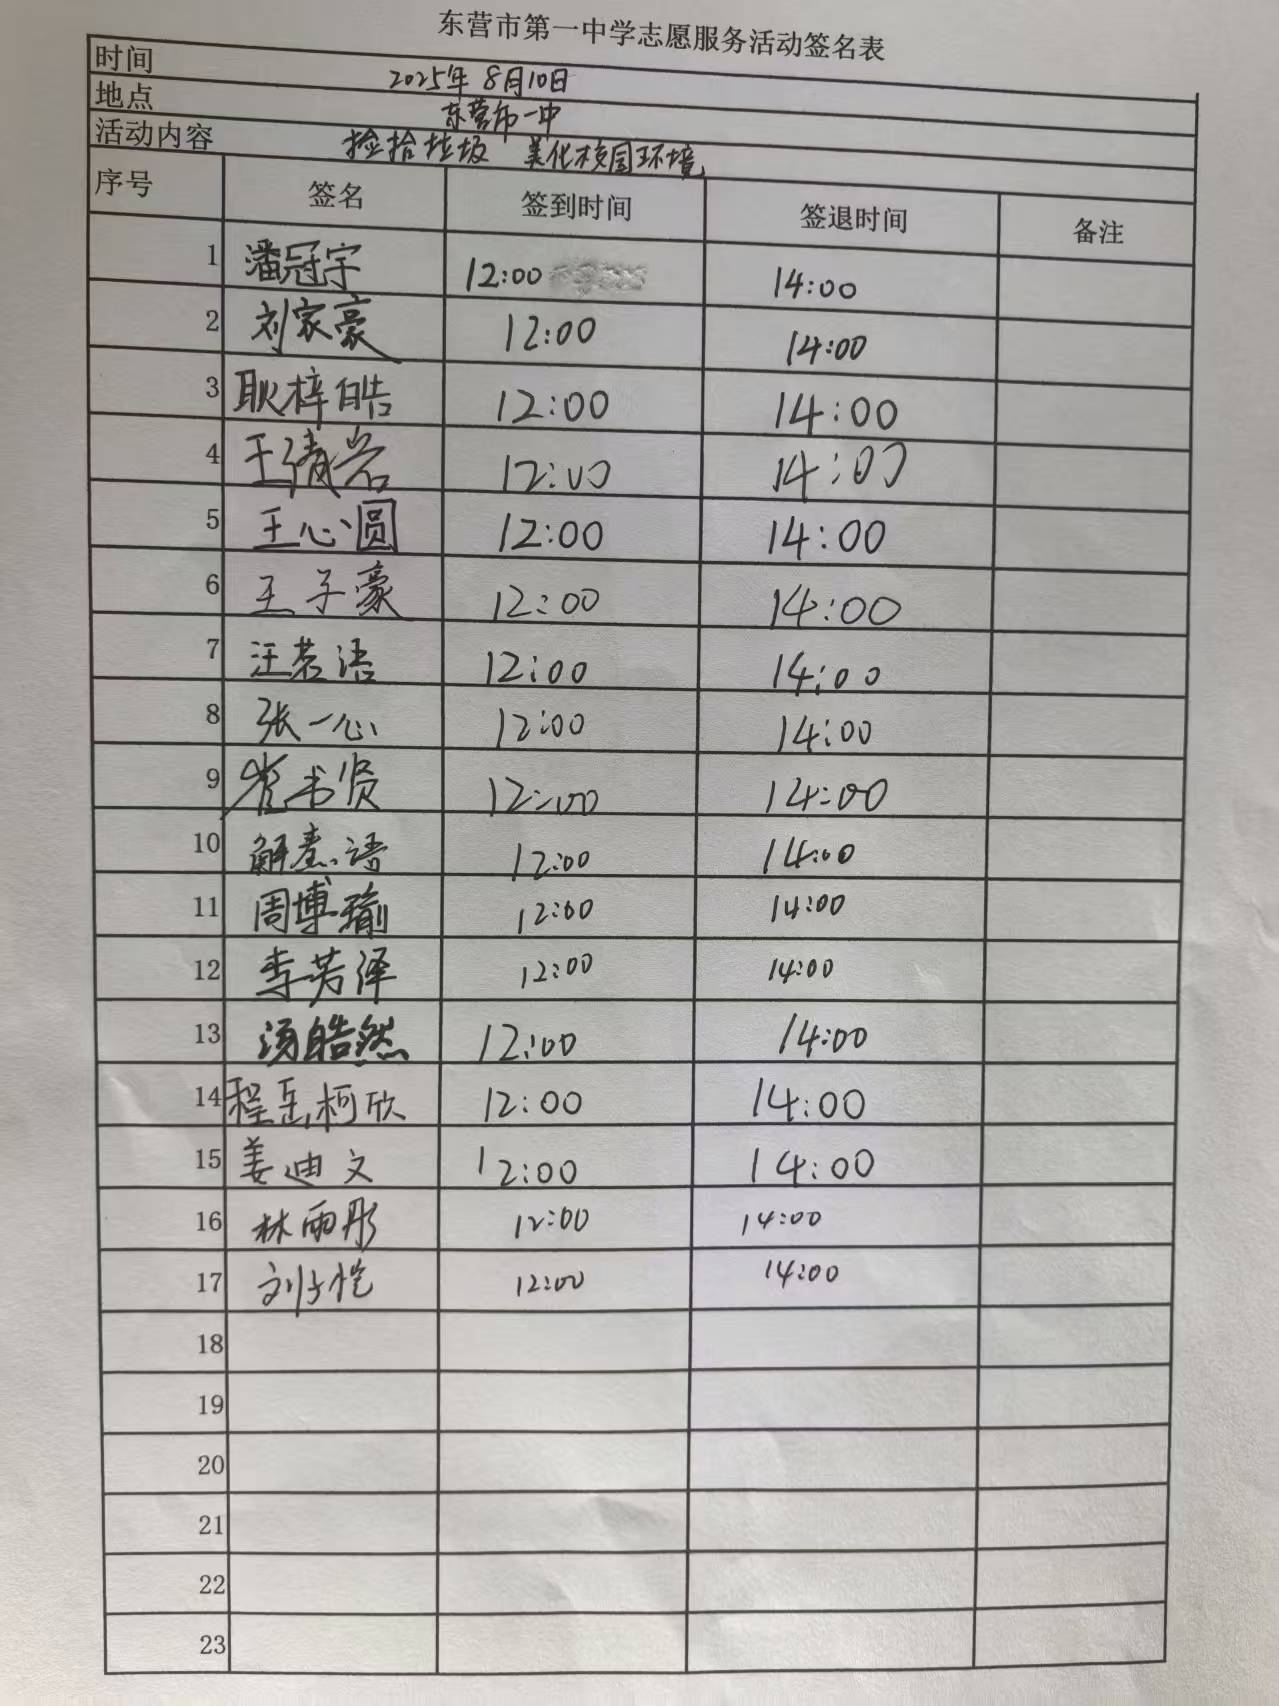 东营市第一中学志愿服务活动签名表
时间 2025年8月10日
地点 东营市一中
活动内容 捡拾垃圾 美化校园环境
序号 签名 签到时间 签退时间 备注
1 潘冠宇 12:00 14:00
2 刘家豪 12:00 14:00
3 耿梓皓 12:00 14:00
4 王倩岩 12:00 14:00
5 王心圆 12:00 14:00
6 王子豪 12:00 14:00
7 汪若语 12:00 14:00
8 张一心 12:00 14:00
9 崔书贤 12:00 14:00
10 解熹语 12:00 14:00
11 周博瑜 12:00 14:00
12 李芳泽 12:00 14:00
13 汤皓然 12:00 14:00
14 程岳柯欣 12:00 14:00
15 姜迪文 12:00 14:00
16 林雨彤 12:00 14:00
17 刘子恺 12:00 14:00
18
19
20
21
22
23